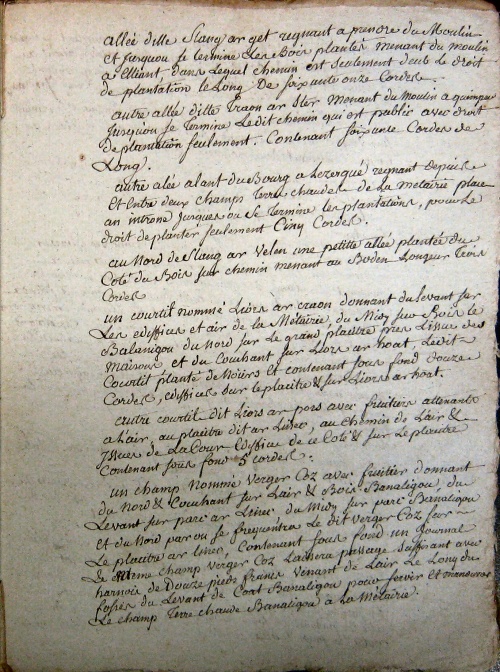 allée ditte Stang ar get regnant a prendre du Moulin
et jusquou se termine Les Bois plantés menant du moulin
a Elliant, dans Lequel chemin est seulement deub Le droit
de plantation Le Long. De soixante onze Cordes.
autre allée ditte Traon ar Ster Menant du Moulin a quimper
jusquou se Termine Ledit chemin qui est public avec droit
de plantation seulement. Contenant soixante Cordes de
Long.
autre alée alant du Bourg a Lezergué regnant depuis
et Entre deux champs Terre chaudes de La metairie place
an introne jusques ou se termine les plantations, pour Le
droit de planter seulement Cinq Cordes.
au Nord de Stang ar velen une petitte allée plantée du
Coté du Bois sur chemin menant au Boden Longeur Trois
Cordes
un courtil nommé Liors ar craon donnant du levant sur
Les ediffices et air de La Métairie, du Midy sur Bois le
Banaligou du Nord sur Le grand placitre pres Lissue des
maisons, et du Couchant sur Liors ar hoat. Ledit
Courtil planté de Moiers et contenant sous fond douze
Cordes, ediffices sur le placitre & sur Liors ar hoat.
autre courtil dit Liors ar pors avec fruitiers attenants
a Lair, au placitre dit ar Liner, au chemin de Lair &
issues de La Cour Ediffice de ce Coté & sur Le placitre
Contenant sous fond 5 cordes.
un champ Nommé verger Coz avec fruitier donnant
du Nord & Couchant sur Lair & Bois Banaligou, du
Levant sur parc ar Leiner du Midy sur parc Banaligou
et du Nord par ou se frequentra Le dit verger Coz sur
Le placitre ar liner, Contenant sous fond un Journal
Le meme champ verger Coz Laissera passage suffisant avec
harnois de Douze pieds francs venant de Lair Le Long du
fossés du Levant de Coat Banaligou pour servir et
Le champ Terre chaude Banaligou a La Métairie.